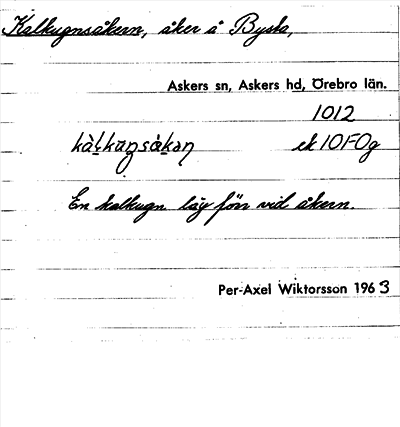 Kalkugnsåkern, åker å Bysta,
Askers sn, Askers hd, Örebro län.
1012
ek 10F0g
En kalkugn låg förr vid åkern.
Per-Axel Wiktorsson 1963